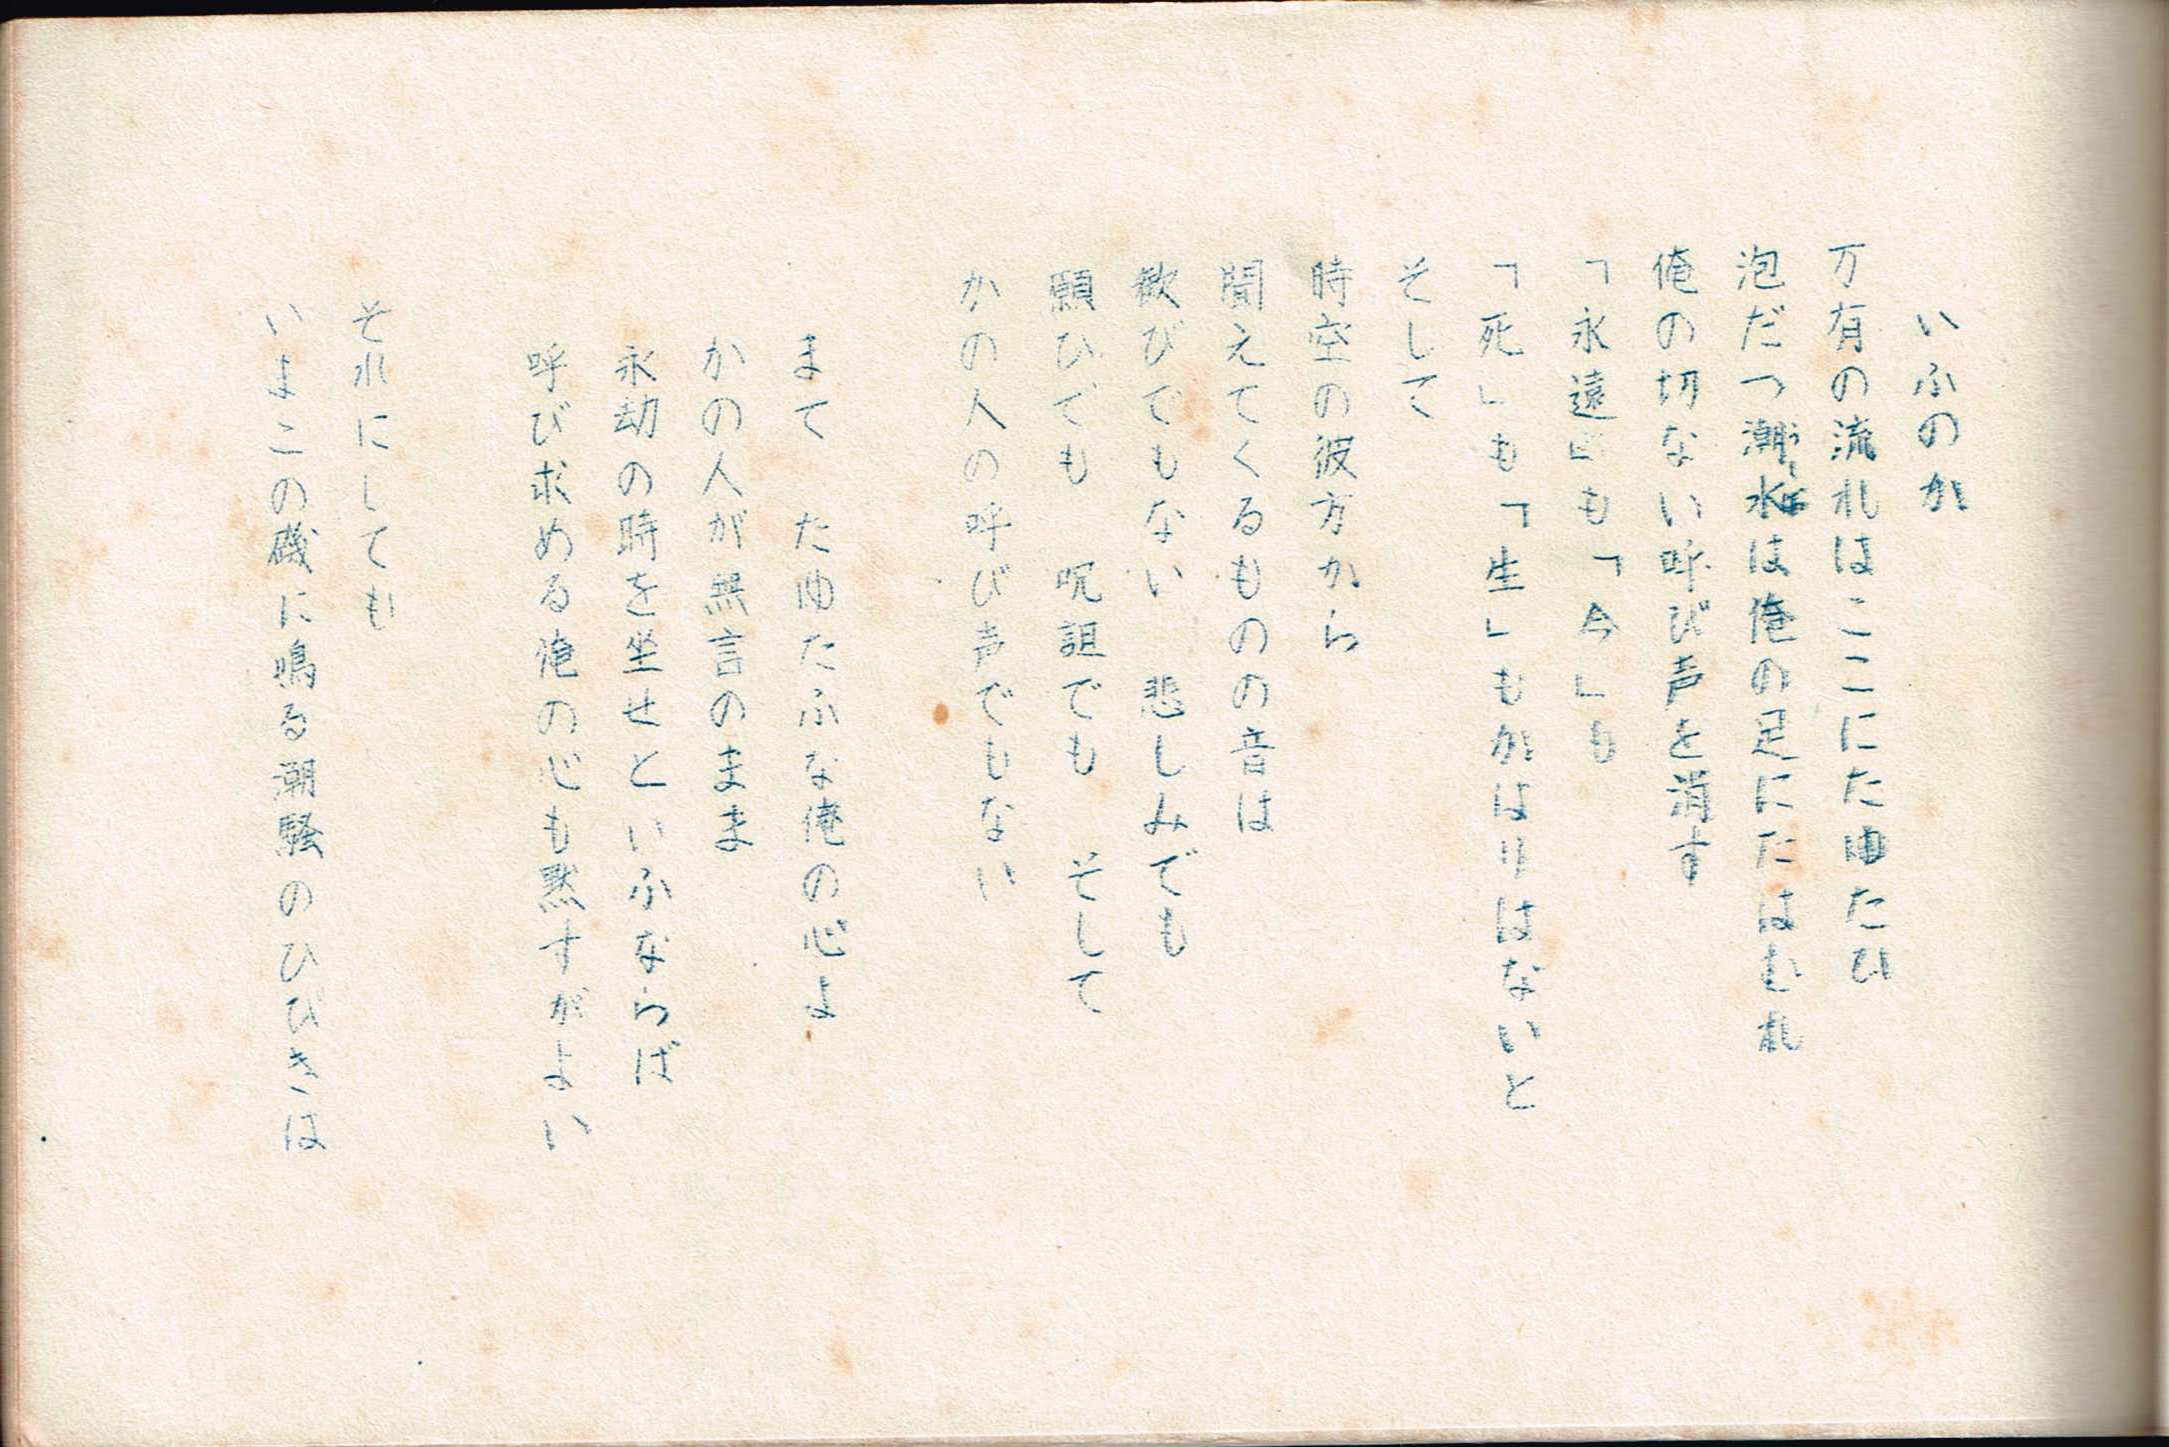 いふのか
万有の流れはここにたゆたひ
泡だつ潮水は俺の足にたはむれ
俺の切ない呼び声を消す
「永遠」も「今」も
「死」も「生」もかはりはないと
そして
時空の彼方から
聞えてくるものの音は
歓びでもない　悲しみでも
願ひでも　呪詛でも　そして
かの人の呼び声でもない
まて　たゆたふな俺の心よ
かの人が無言のまま
永劫の時を坐せといふならば
呼び求める俺の心も黙すがよい
それにしても
いまこの磯に鳴る潮騒のひびきは